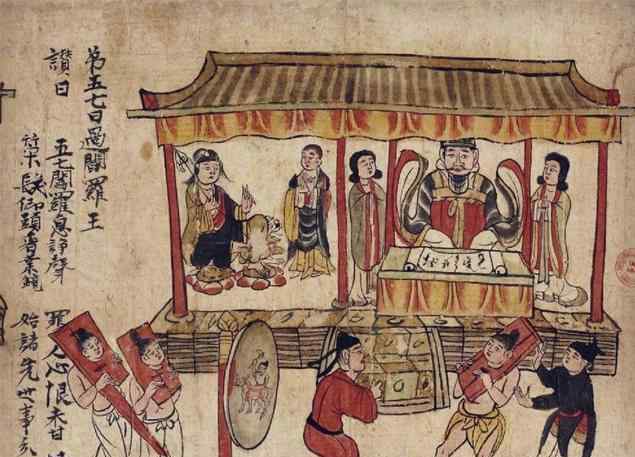 第五七日過閻羅王
讚曰　五七閻羅息諍聲　罪人心恨未甘
髮仰頭看業鏡　始諸先世事